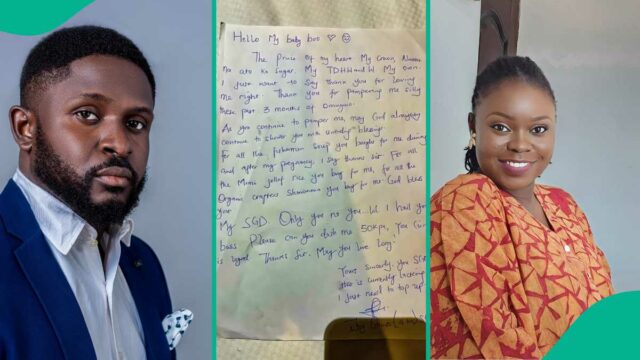 Hello My baby boo
The Prince of my heart My Crown,
na ato ka sugar. My TDHH and W My own
I just want to say thank you for loving
me right. Thank you for pampering me silly
these past 3 months of Omugwo.
As you continue to pamper me, may God almighty
continue to shower you with blessings
for all the fisherman soup you bought for me during
and after my pregnancy, I say thanks sir. For all
the Mama jollof rice you buy for me, for all the
Organic you buy for me God bless
you
My SGD. Only you no you. lol I hail you
boss Please can you dash me 50kps, You
is Thanks Sir. May you live long.
Yours Sincerely, you
is currently
I just need to top up